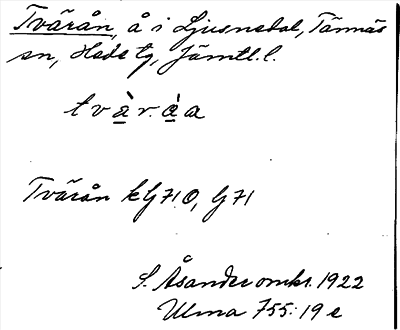 Tvärån, å i Ljusnedal, Tännäs
sn, Hede tg, Jämtl. l.
t v à̱ r. à̱ a
Tvärån kG 71 O, G 71
S. Åsander omkr. 1922
Ulma 755: 19 e